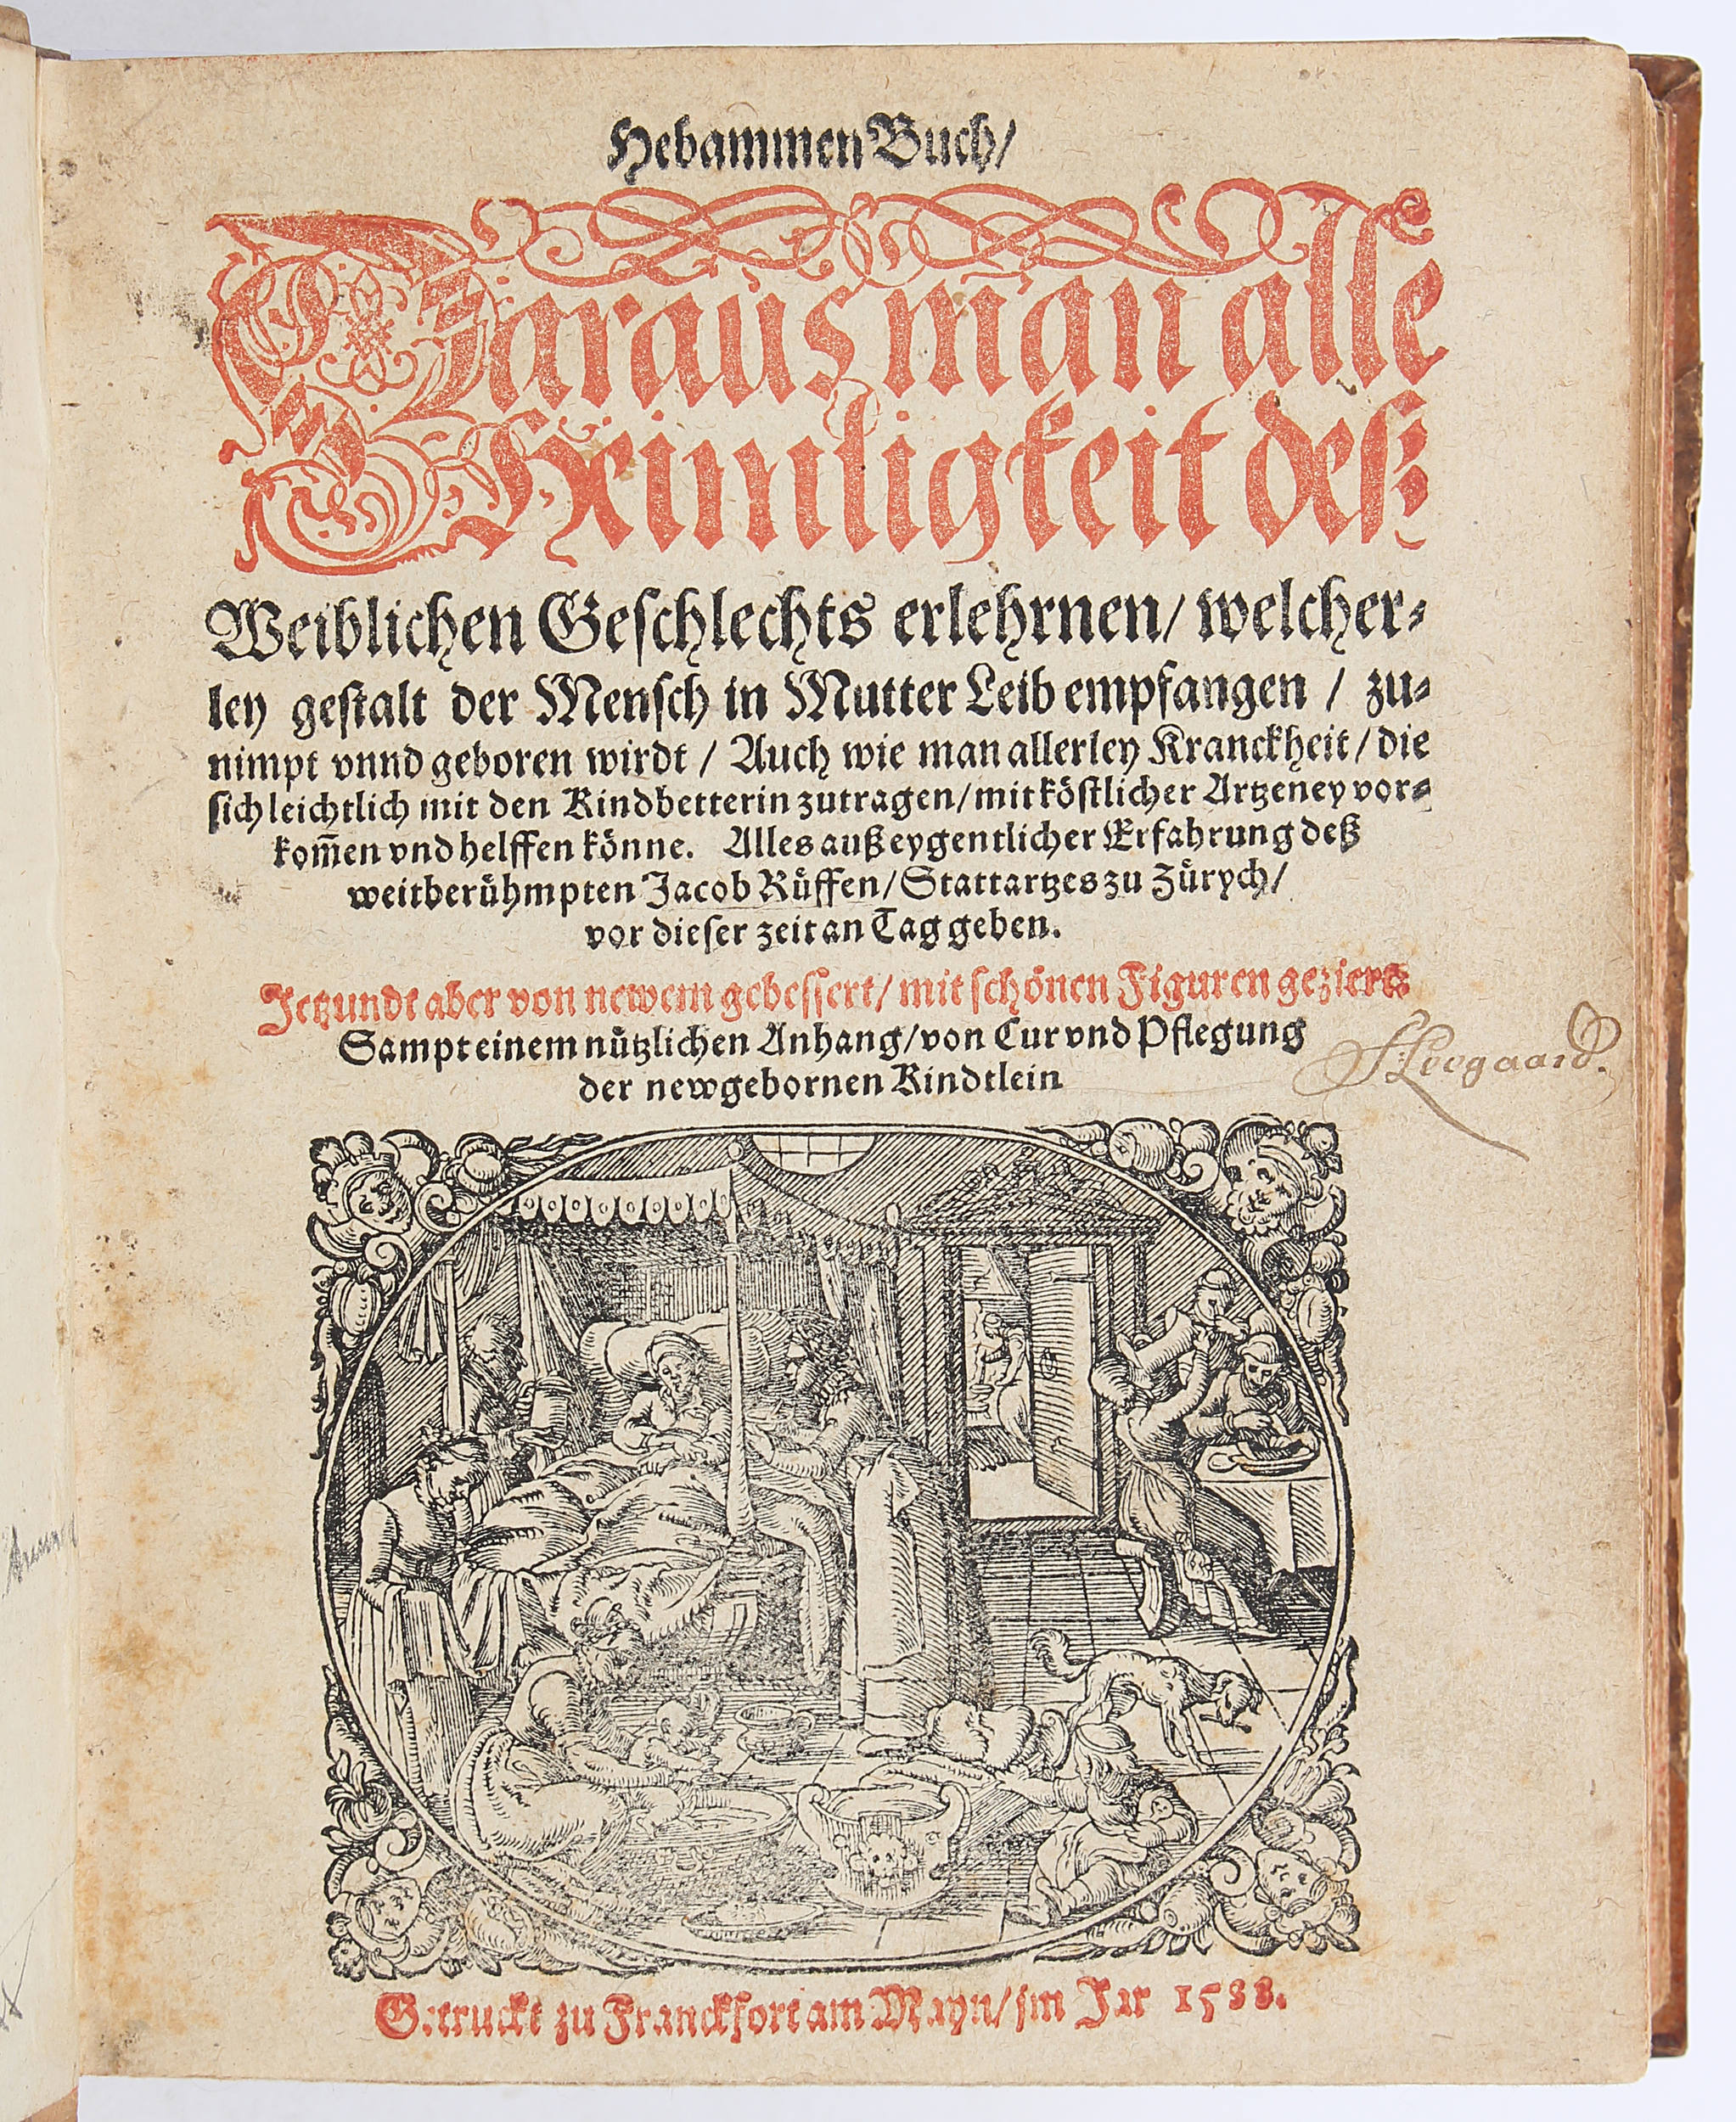 Hebammen Buch/
Daraus man alle
Heimligkeit deß
Weiblichen Geschlechts erlehrnen/ welcher⸗
ley gestalt der Mensch in Mutter Leib empfangen / zu⸗
nimpt vnnd geboren wirdt / Auch wie man allerley Kranckheit / die
sich leichtlich mit den Kindbetterin zutragen/ mit köstlicher Artzeney vor⸗
kom̃en vnd helffen könne. Alles auß eygentlicher Erfahrung deß
weitberühmpten Jacob Rüffen/ Stattartzes zu Zürych/
vor dieser zeit an Tag geben.
Jetzundt aber von newem gebessert/ mit schönen Figuren geziert⸗
Sampt einem nützlichen Anhang/ von Cur vnd Pflegung
der newgebornen Kindtlein
Getruckt zu Franckfort am Mayn/ im Jar 1588.